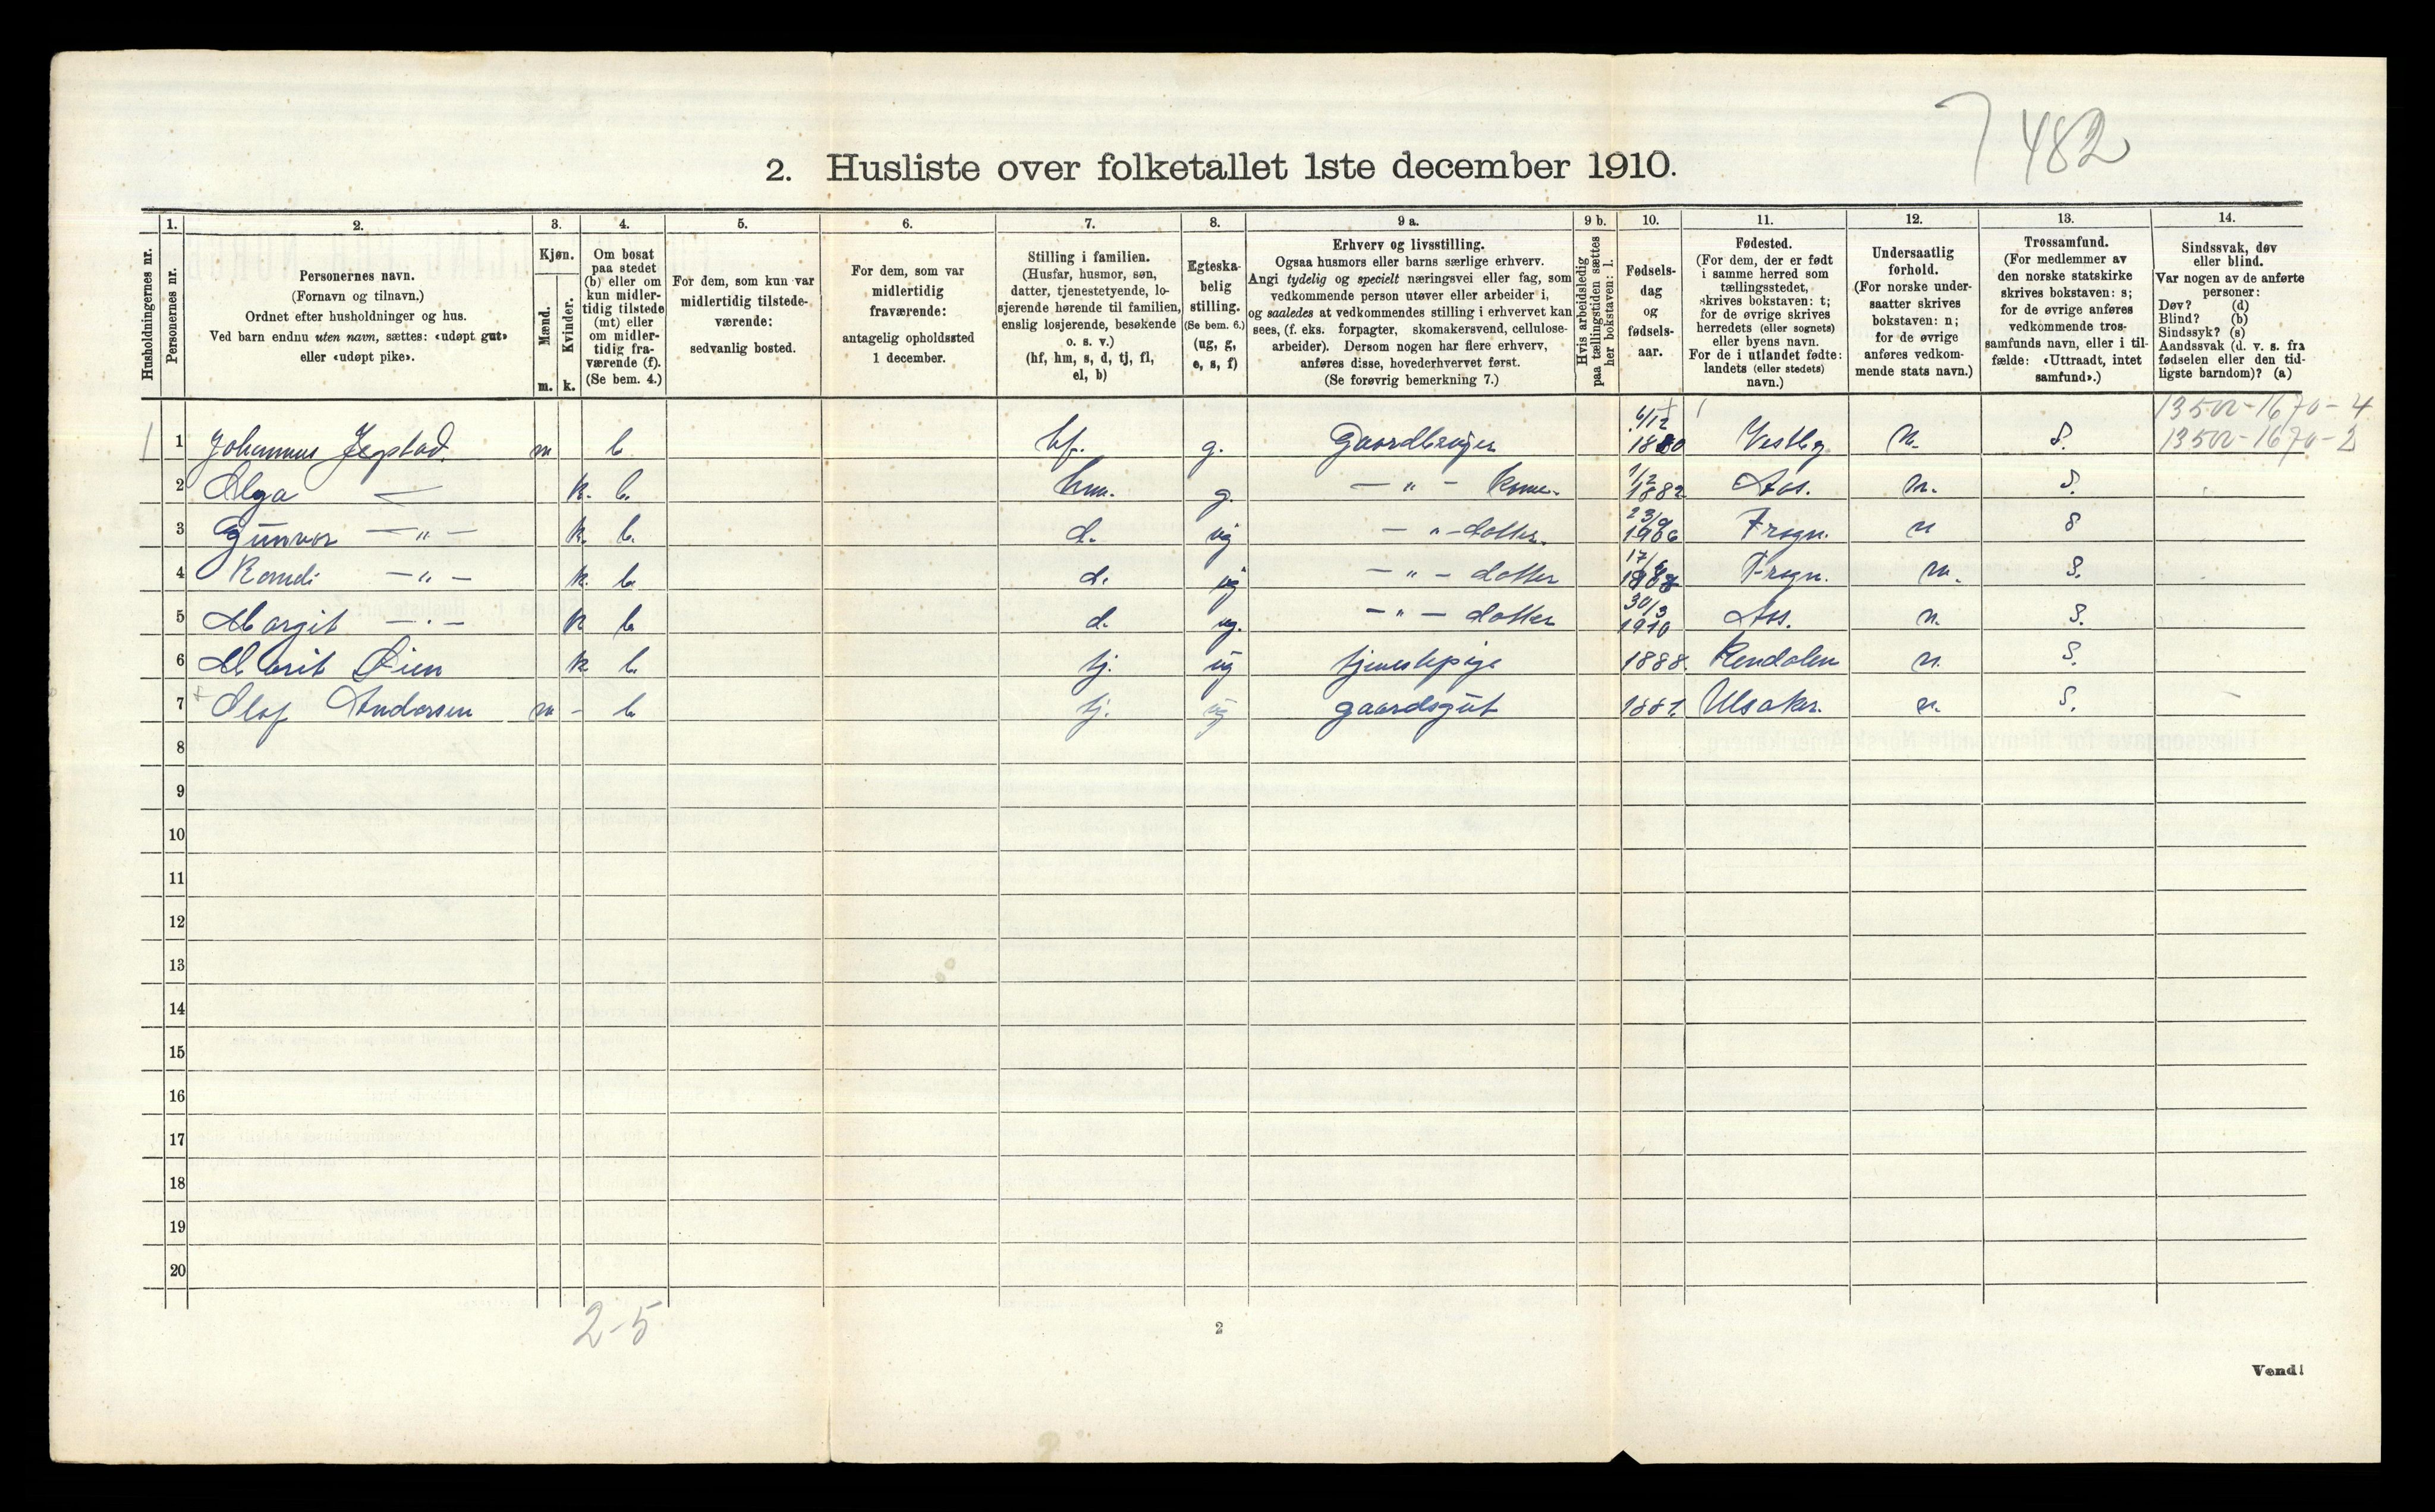 7 482
2. Husliste over folketallet 1ste december 1910.
Husholdningernes nr.
1. Personernes nr.
2. Personernes navn.
(Fornavn og tilnavn.)
Ordnet efter husholdninger og hus.
Ved barn endnu uten navn, sættes: «udøpt gut»
eller «udøpt pike».
3. Kjøn.
Mænd. m.
Kvinder. k.
4. Om bosat
paa stedet
(b) eller om
kun midler-
tidig tilstede
(mt) eller
om midler-
tidig fra-
værende (f).
(Se bem. 4.)
5. For dem, som kun var
midlertidig tilstede-
værende:
sedvanlig bosted.
6. For dem, som var
midlertidig
fraværende:
antagelig opholdssted
1 december.
7. Stilling i familien.
(Husfar, husmor, søn,
datter, tjenestetyende, lo-
sjerende hørende til familien,
enslig losjerende, besøkende
o. s. v.)
(hf, hm, s, d, tj, fl,
el, b)
8. Egteska-
belig
stilling.
(Se bem. 6.)
(ug, g,
e, s, f)
9 a. Erhverv og livsstilling.
Ogsaa husmors eller barns særlige erhverv.
Angi tydelig og specielt næringsvei eller fag, som
vedkommende person utøver eller arbeider i,
og saaledes at vedkommendes stilling i erhvervet kan
sees, (f. eks. forpagter, skomakersvend, cellulose-
arbeider). Dersom nogen har flere erhverv,
anføres disse, hovederhvervet først.
(Se forøvrig bemerkning 7.)
9 b. Hvis arbeidsledig
paa tællingstiden sættes
her bokstaven: l.
10. Fødsels-
dag
og
fødsels-
aar.
11. Fødested.
(For dem, der er født
i samme herred som
tællingsstedet,
skrives bokstaven: t;
for de øvrige skrives
herredets (eller sognets)
eller byens navn.
For de i utlandet fødte:
landets (eller stedets)
navn.)
12. Undersaatlig
forhold.
(For norske under-
saatter skrives
bokstaven: n;
for de øvrige
anføres vedkom-
mende stats navn.)
13. Trossamfund.
(For medlemmer av
den norske statskirke
skrives bokstaven: s;
for de øvrige anføres
vedkommende tros-
samfunds navn, eller i til-
fælde: «Uttraadt, intet
samfund».)
14. Sindssvak, døv
eller blind.
Var nogen av de anførte
personer:
Døv? (d)
Blind? (b)
Sindssyk? (s)
Aandssvak (d. v. s. fra
fødselen eller den tid-
ligste barndom)? (a)
1 1 Johannus Jegstad. m b hf. g. Gaardbruger 6/12 1880 Vestby n. S.
2 Olga — k. b. hm. g. — " — kone. 1/12 1882 Aas. n. S.
3 Gunvor — " — k. b. d. ug — " — dotter. 1906 Frogn. n S
4 Randi — " — k. b. d. ug — " — dotter Frogn. n. S.
5 Margit — " — k b d. ug. — " — dotter 30/3 1910 Aas. n. S.
6 Marit Øien k b. tj. ug tjenestepige 1888. Rendalen n. S.
7 Olaf Andersen m - b. tj. ug gaardsgut Ulsaker. n. S.
8
9
10
11
12
13
14
15
16
17
18
19
20
2-5
2
Vend!